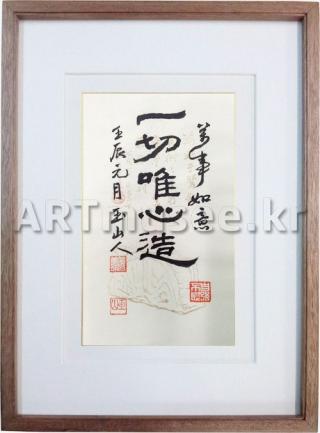 萬事如意
一切唯心造
壬辰元月玉山人
ARTmusee.kr